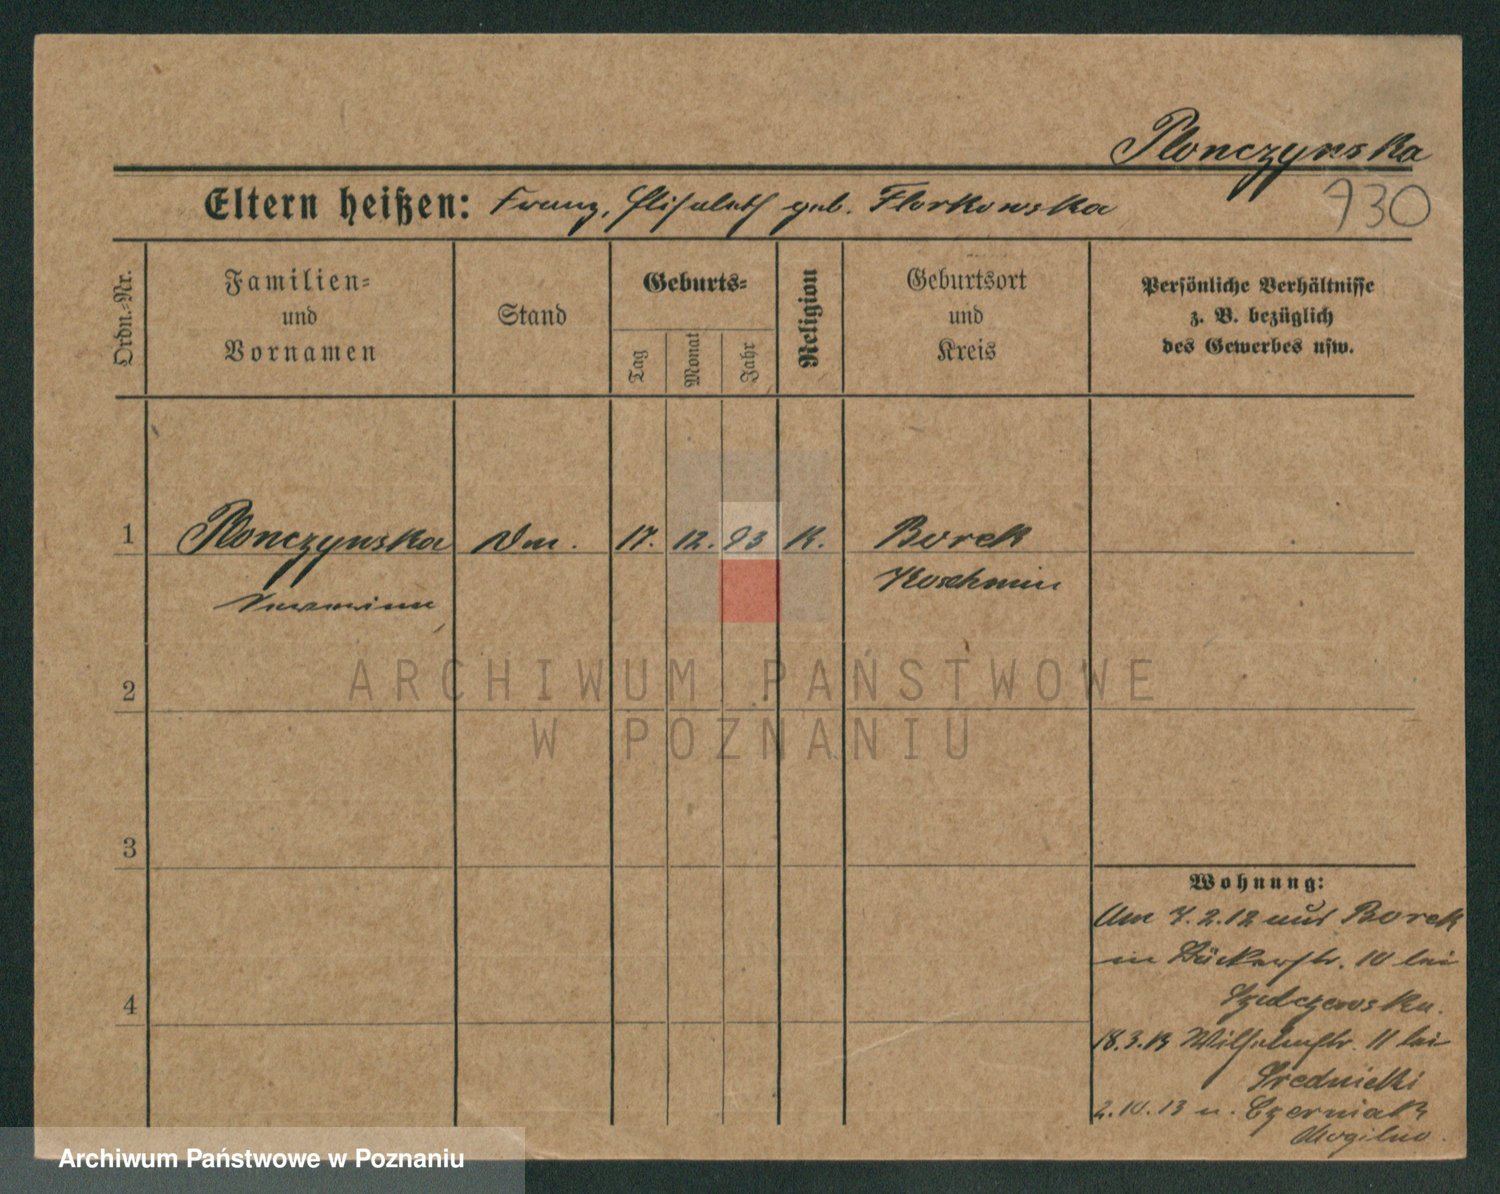 Plonczynska
Eltern heißen: Franz, Elisabeth geb. Florkowska
930
Ordn.-Nr.
Familien-
und
Vornamen
Stand
Geburts-
Tag
Monat
Jahr
Religion
Geburtsort
und
Kreis
Persönliche Verhältnisse
z. B. bezüglich
des Gewerbes usw.
1 Plonczynska 17. 12. 93 K. Borek
Koschmin
2
3
4
Wohnung:
Am 7.2.12 aus Borek
in Bäckerstr. 10 bei
18.3.13 Wilhelmstr. 11 bei
Srednicki
2.10.13 n. Czerniak
Mogilno.
ARCHIWUM PAŃSTWOWE
W POZNANIU
Archiwum Państwowe w Poznaniu